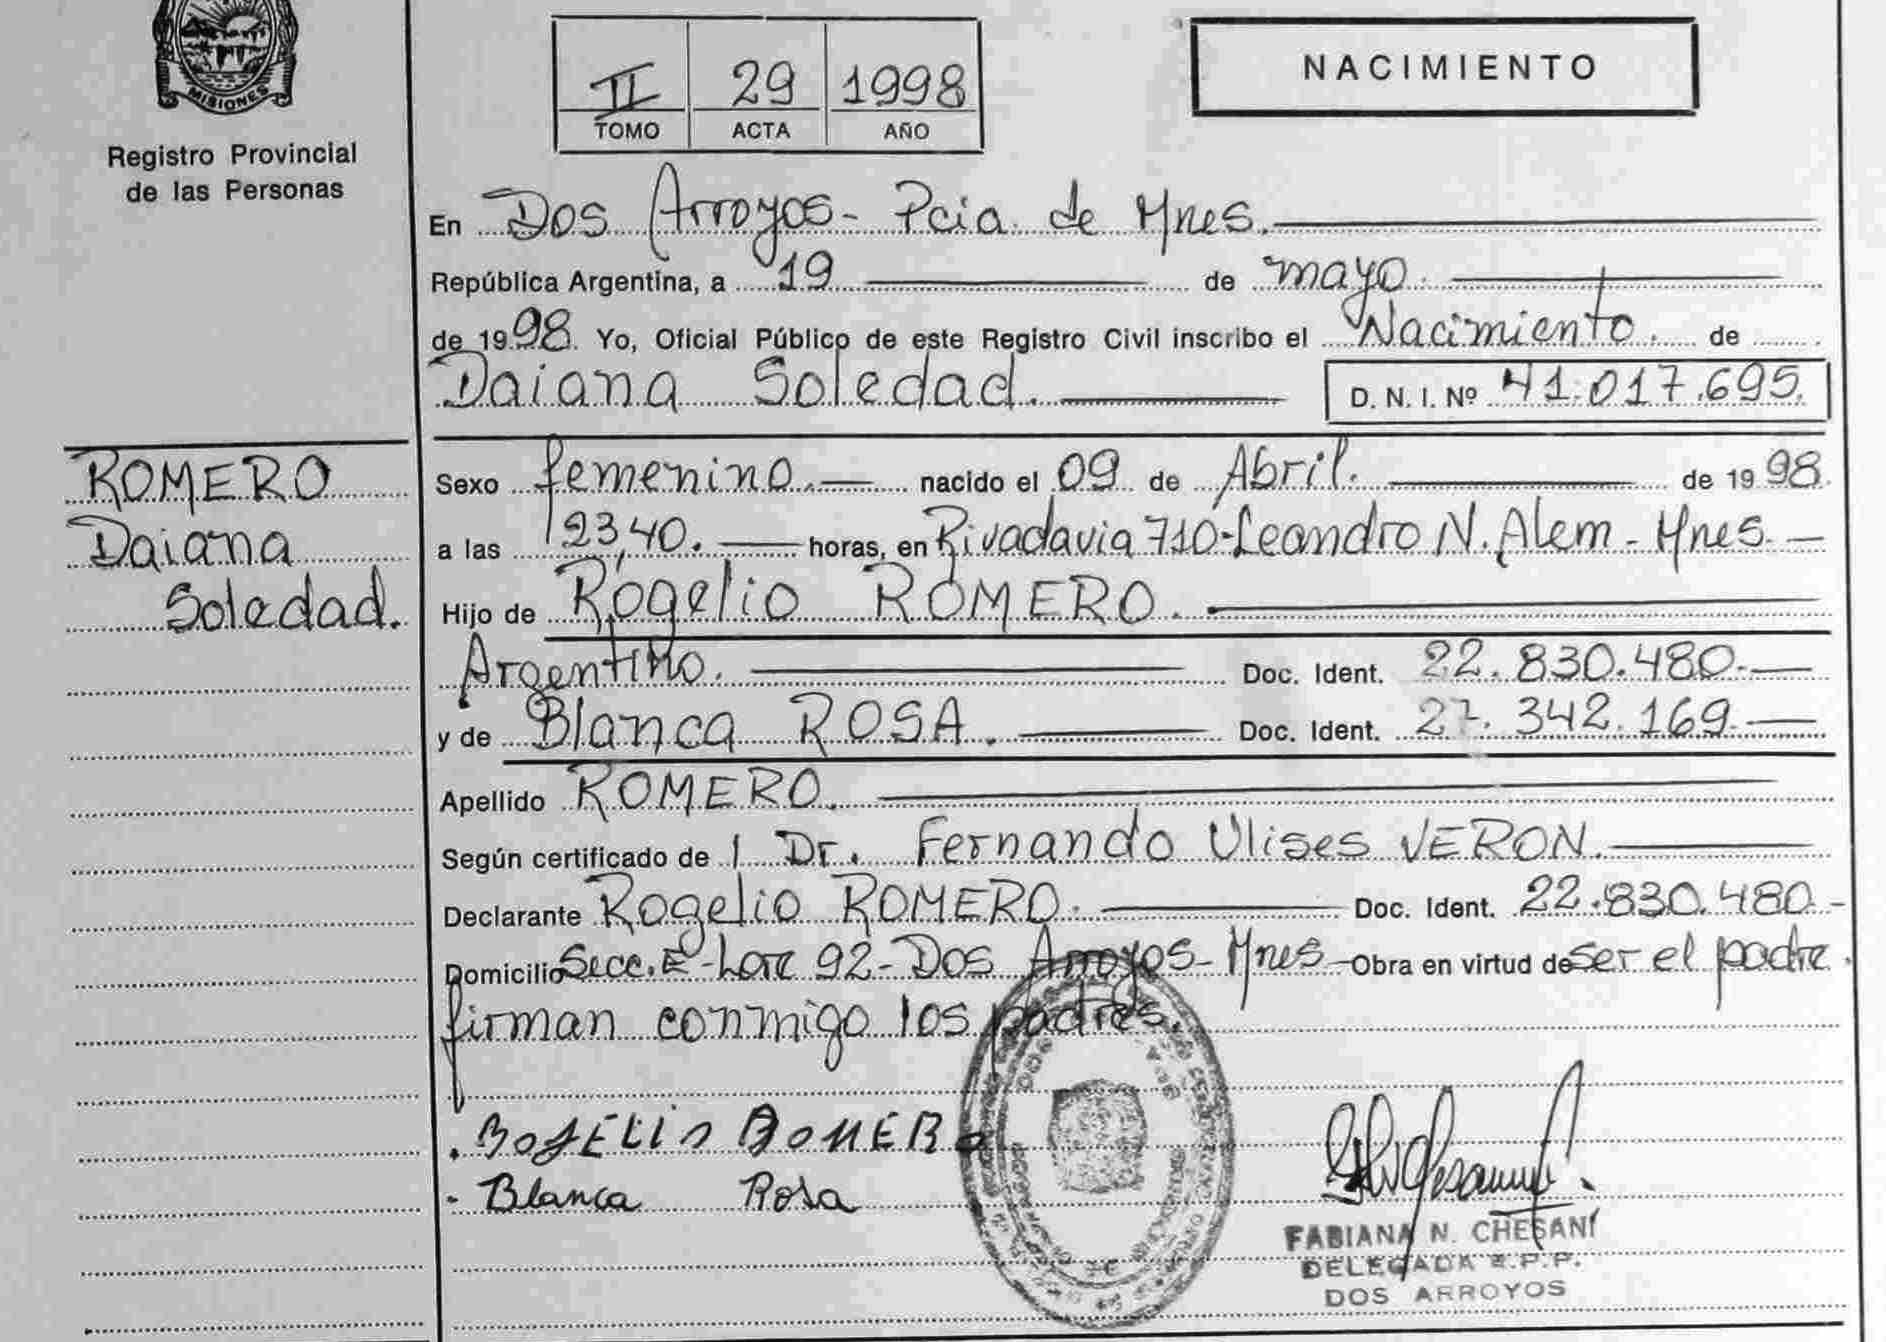 MISIONES
Registro Provincial
de las Personas
II 29 1998
TOMO ACTA AÑO
NACIMIENTO
En Dos Arroyos - Pcia. de Mnes.
República Argentina, a 19 de mayo
de 1998. Yo, Oficial Público de este Registro Civil inscribo el Nacimiento. de
Daiana Soledad. D. N. I. Nº 41.017.695.
ROMERO
Daiana
Soledad.
Sexo femenino. nacido el 09 de Abril. de 1998.
a las 23,40. horas, en Rivadavia 710-Leandro N. Alem - Mnes.
Hijo de Rogelio ROMERO.
Argentino. Doc. Ident. 22.830.480.
y de Blanca ROSA. Doc. Ident. 27.342.169.
Apellido ROMERO.
Según certificado de l Dr. Fernando Ulises VERON.
Declarante Rogelio ROMERO. Doc. Ident. 22.830.480.
Domicilio Secc. Lote 92 - Dos Arroyos - Mnes - Obra en virtud de ser el padre.
firman conmigo los padres.
ROJELIO ROMERO
Blanca Rosa
FABIANA N. CHESANI
DELEGADA R.P.P.
DOS ARROYOS